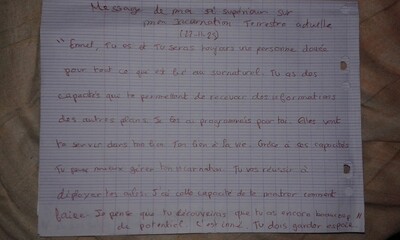 Message de mon soi supérieur sur
mon Incarnation Terrestre actuelle
(27-11-23)
" Emel, Tu es et Tu seras toujours une personne douée
pour tout ce qui est lié au surnaturel. Tu as des
capacités qui te permettent de recevoir des informations
des autres plans. Je les ai programmés pour toi. Elles vont
te servir dans ton lien à la vie. Grâce à ces capacités
Tu peux maitre ton incarnation. Tu vas réussir à
déployer tes ailes. J'ai cette capacité de te montrer comment
faire. Je pense que tu découvriras que tu as encore beaucoup
de potentiel. C'est inné. Tu dois garder espoir "